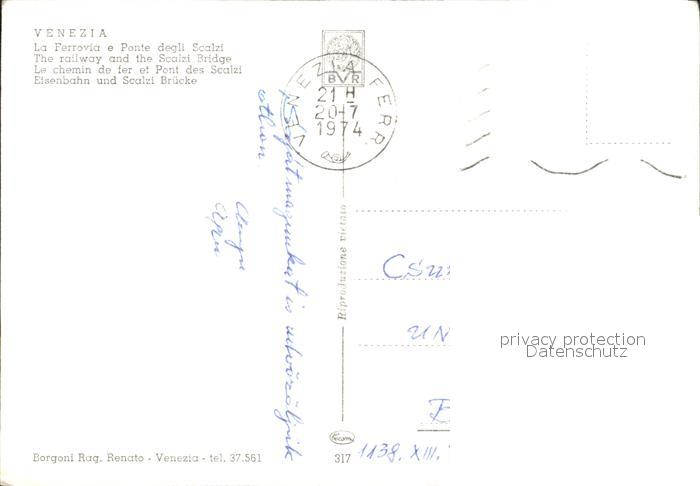 VENEZIA
La Ferrovia e Ponte degli Scalzi
The railway and the Scalzi Bridge
Le chemin de fer et Pont des Scalzi
Eisenbahn und Scalzi Brücke
BVR
VENEZIA FERR.
21 H
20-7
1974
Saját magunkat is üdvözöljük
otthon.
Anyu
Apu
Riproduzione vietata
CSU
UN
1138. XIII.
privacy protection
Datenschutz
Borgoni Rag. Renato - Venezia - tel. 37.561
317